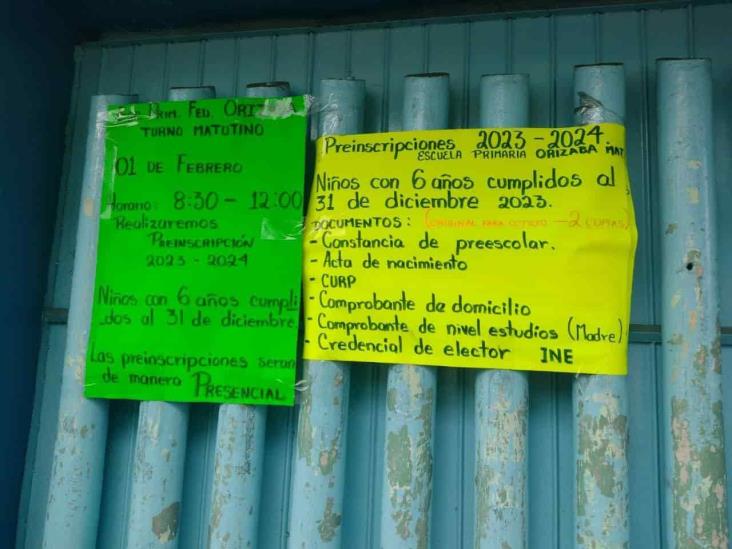 Prim. Fed. Oriz
TURNO MATUTINO
01 DE FEBRERO
Horario: 8:30 - 12:00
Realizaremos
PREINSCRIPCIÓN
2023 - 2024
Niños con 6 años cumpli
dos al 31 de diciembre.
Las preinscripciones seran
de manera PRESENCIAL
Preinscripciones 2023 - 2024
ESCUELA PRIMARIA ORIZABA MAT
Niños con 6 años cumplidos al
31 de diciembre 2023.
DOCUMENTOS: (ORIGINAL PARA COTEJO - 2 COPIAS)
- Constancia de preescolar.
- Acta de nacimiento
- CURP
- Comprobante de domicilio
- Comprobante de nivel estudios (Madre)
- Credencial de elector INE